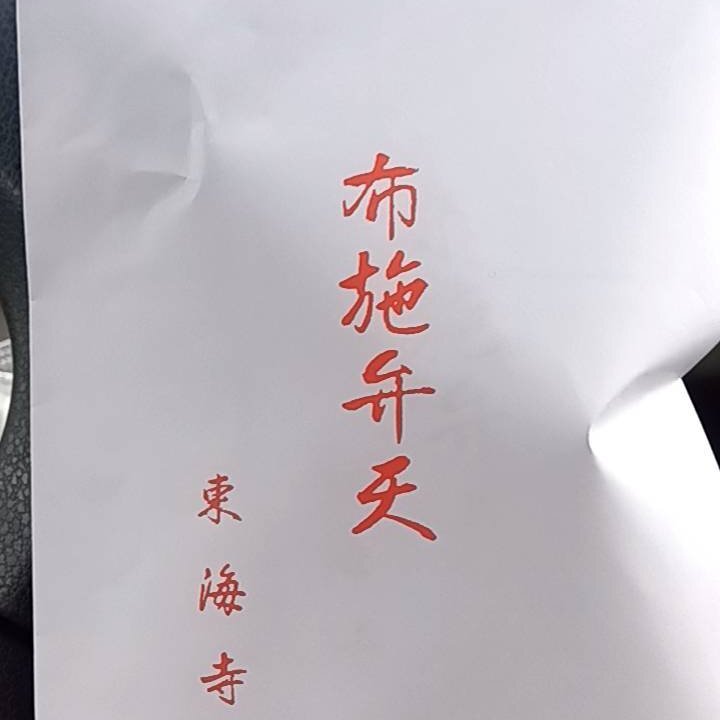 布施弁天
東海寺